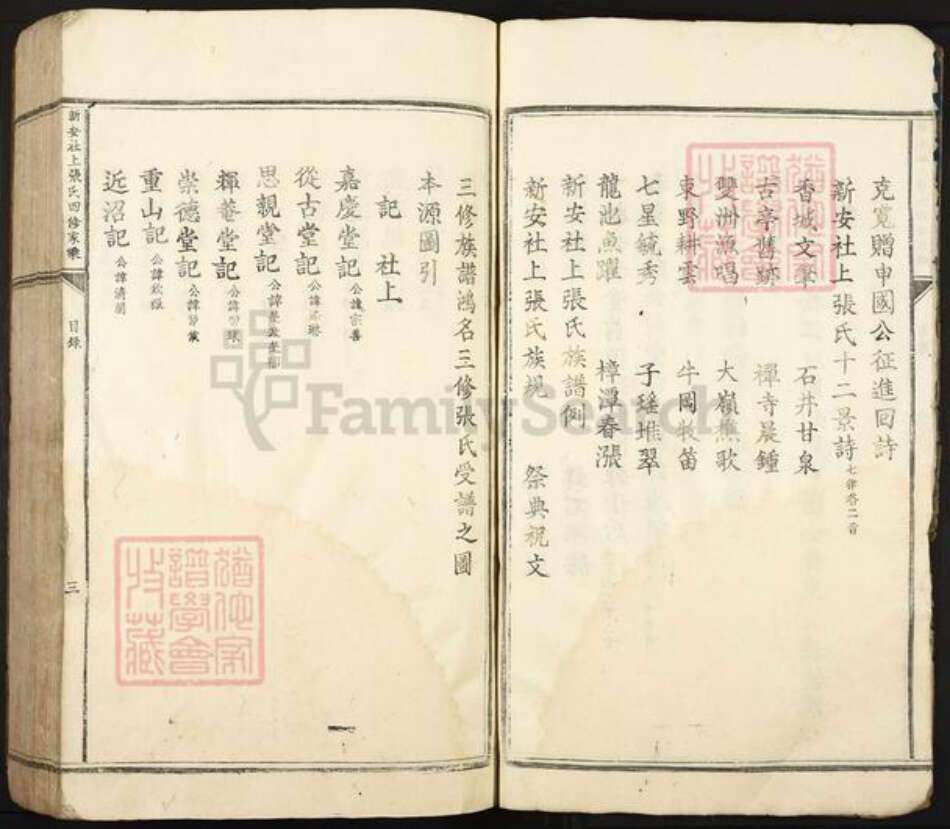 克寬贈申國公征進回詩
新安社上張氏十二景詩 七律各二首
香城文筆 石井甘泉
古亭舊跡 禪寺晨鍾
雙洲漁唱 大嶺樵歌
東野耕雲 牛岡牧笛
七星毓秀 子瑤堆翠
龍池魚躍 樟潭春漲
新安社上張氏族譜例
新安社上張氏族規 祭典祝文
三修族譜鴻名三修張氏受譜之圖
本源圖引
記 社上
嘉慶堂記 公諱宗善
從古堂記 公諱
思親堂記 公諱
輝菴堂記 公諱
崇德堂記 公諱
重山記 公諱
近沼記 公諱
新安社上張氏四修家乘
目錄
三
FamilySearch
譜學會
收藏